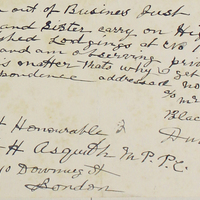 out of Business Just
and Sister carry on Hig
shed Lodgings at
and am observing priv
is matter thats why I get
spondence addressed
Blac
t Honourable
H Asquith M.P.P.C.
10 Downing St
London